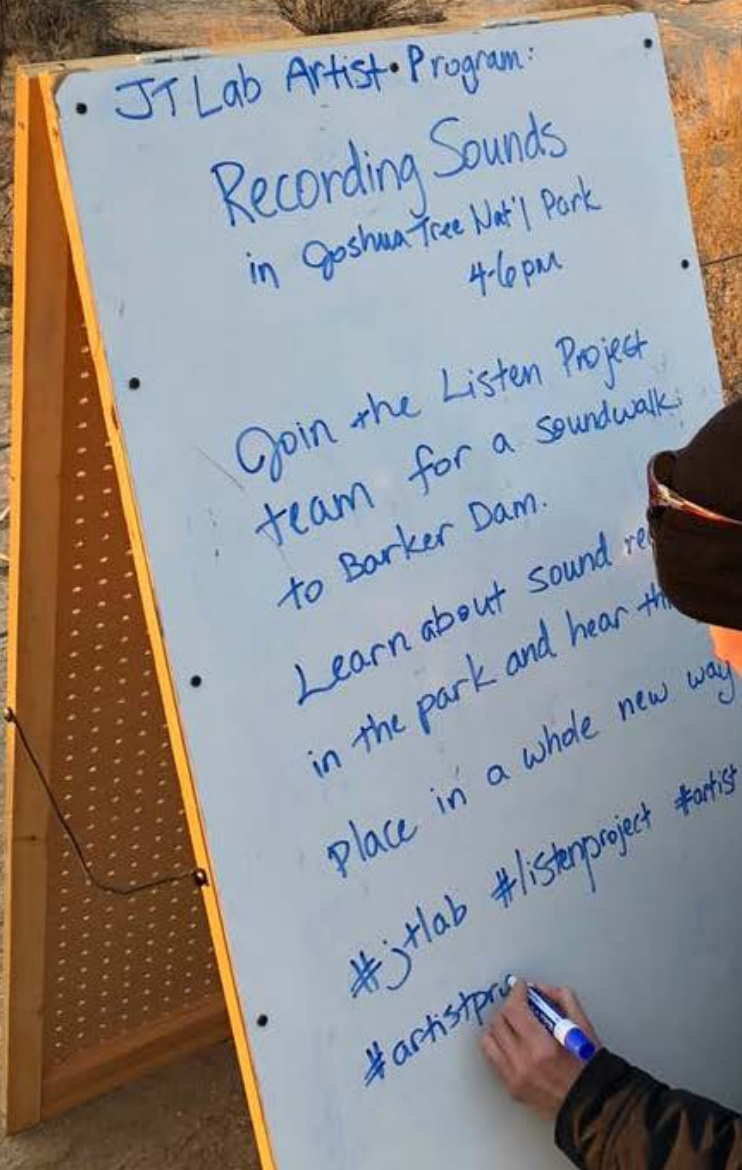 JT Lab Artist • Program:
Recording Sounds
in Joshua Tree Nat'l Park
4-6pm
Join the Listen Project
team for a soundwalk
to Barker Dam.
Learn about sound re
in the park and hear th
place in a whole new way
#jtlab #listenproject #artist
#artistpro